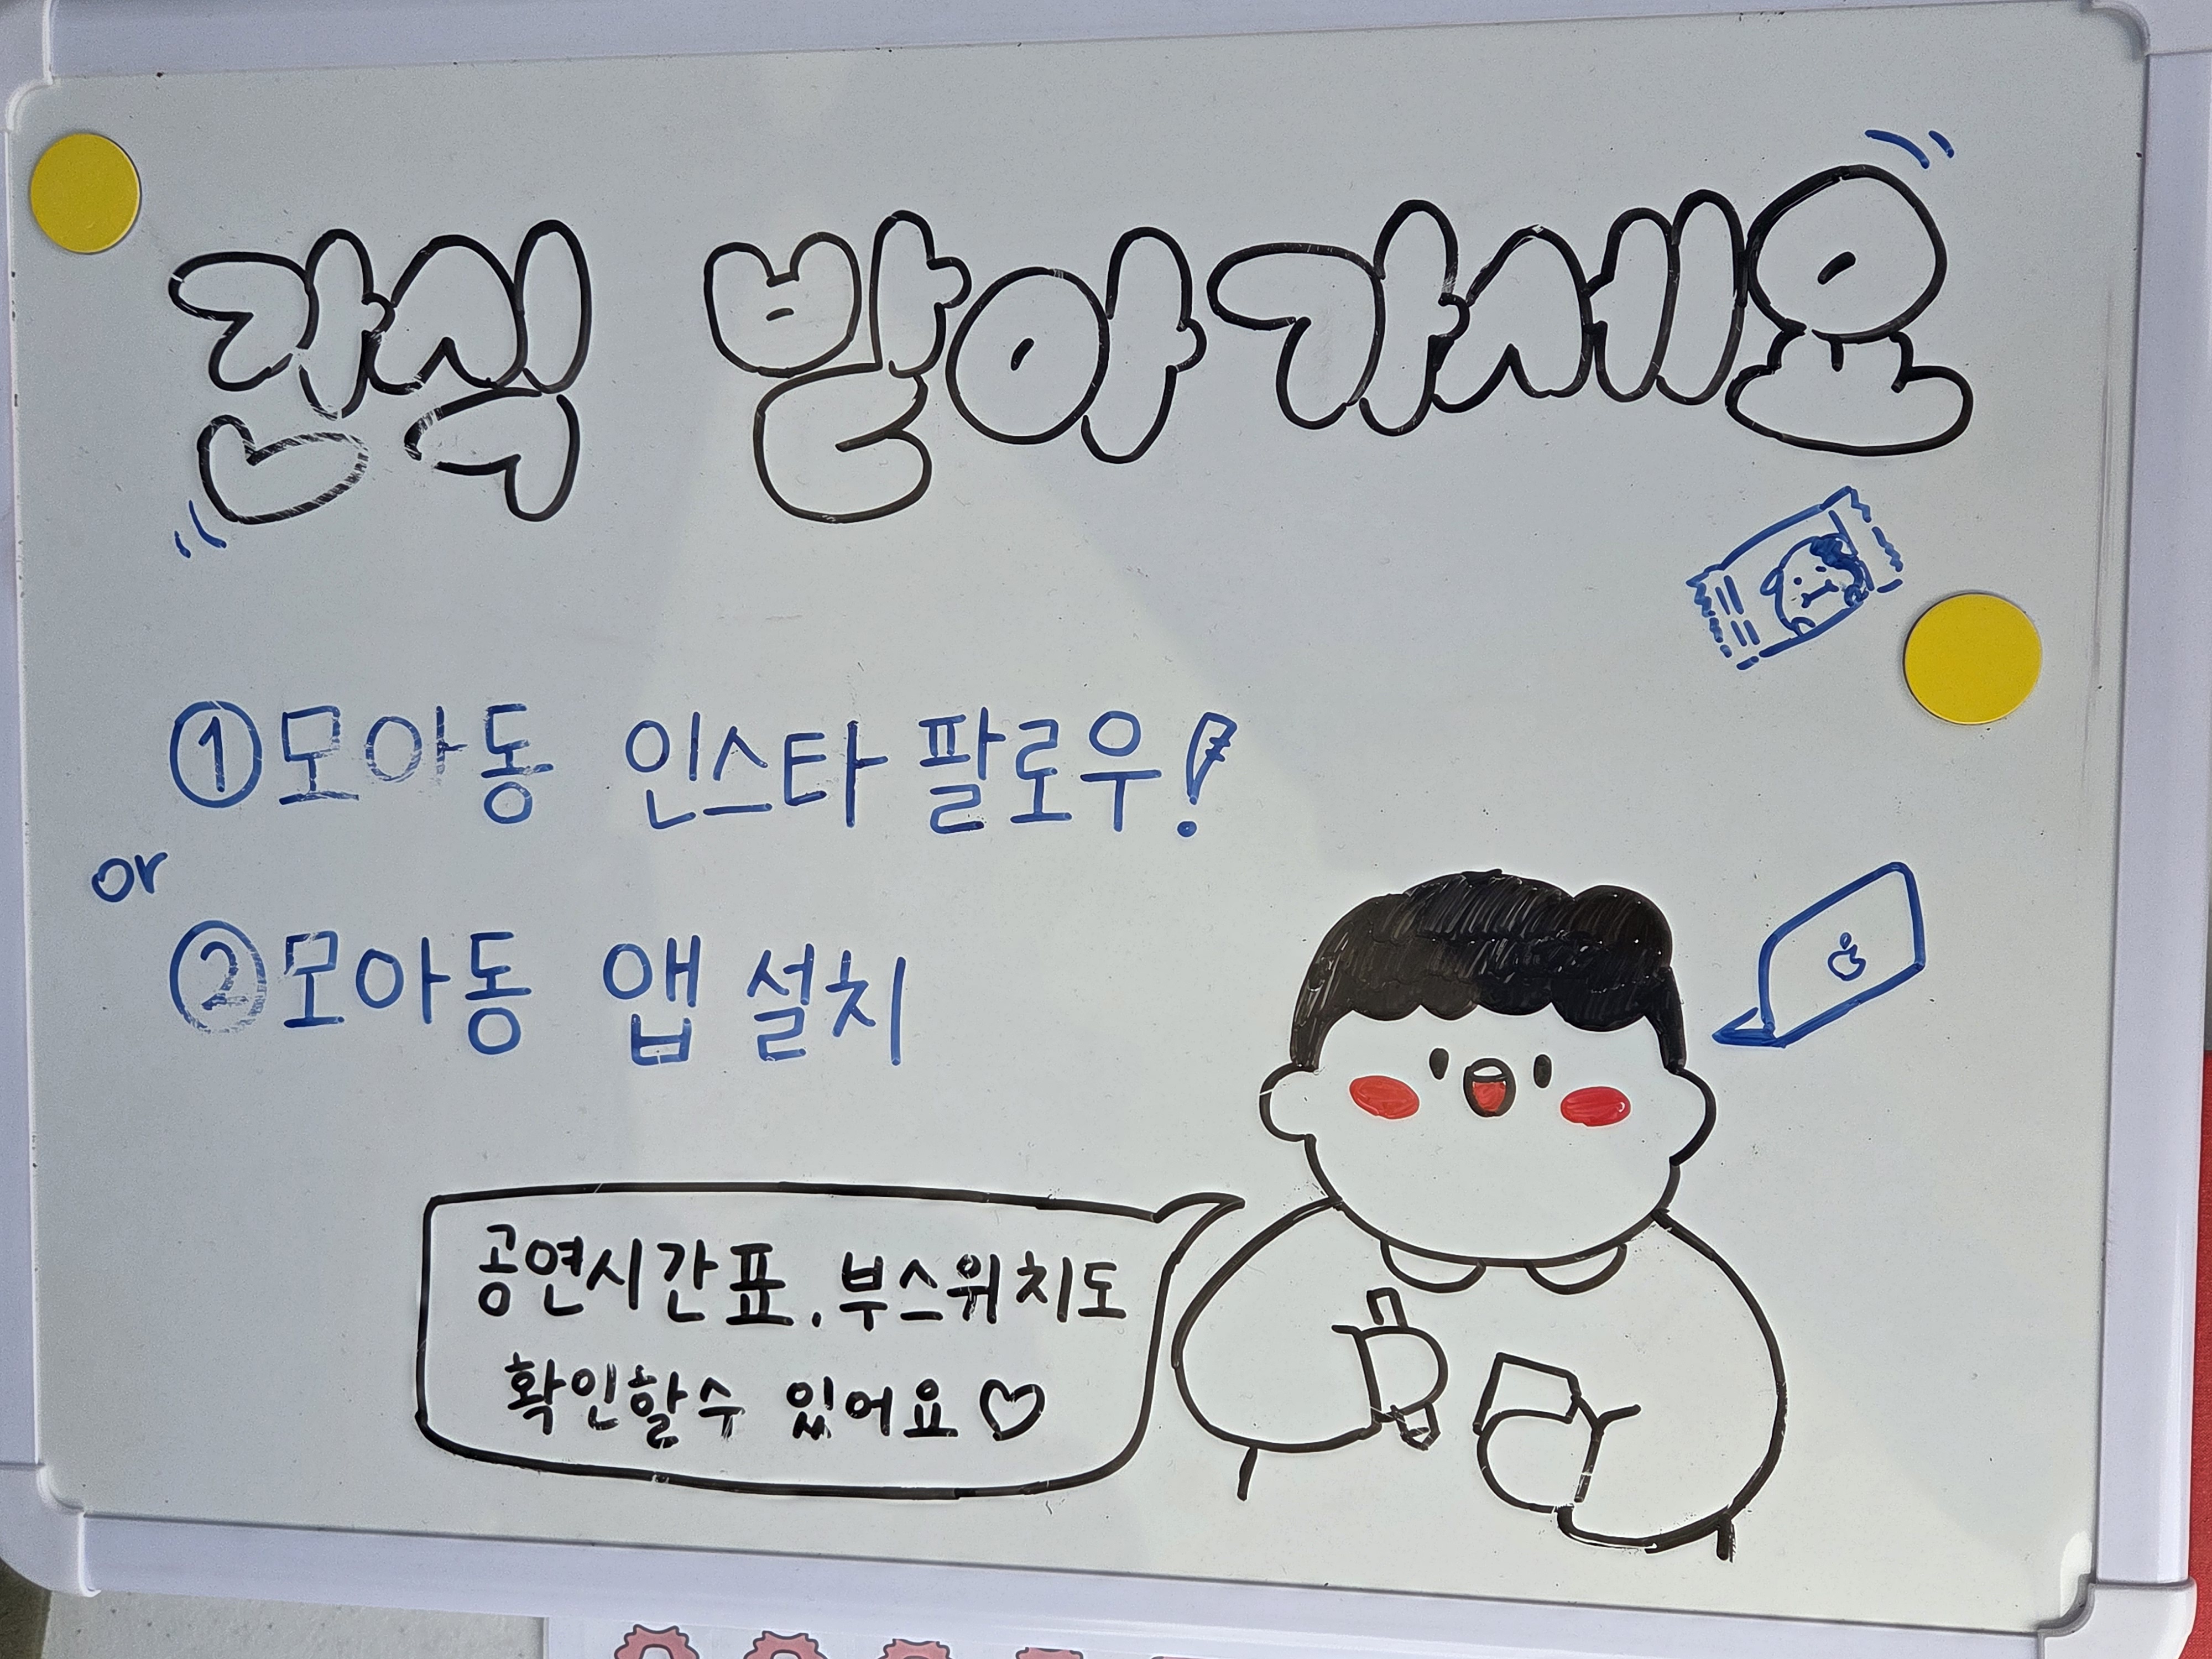 간식 받아가세요
①모아동 인스타 팔로우!
or
②모아동 앱 설치
공연시간표, 부스위치도
확인할수 있어요♡